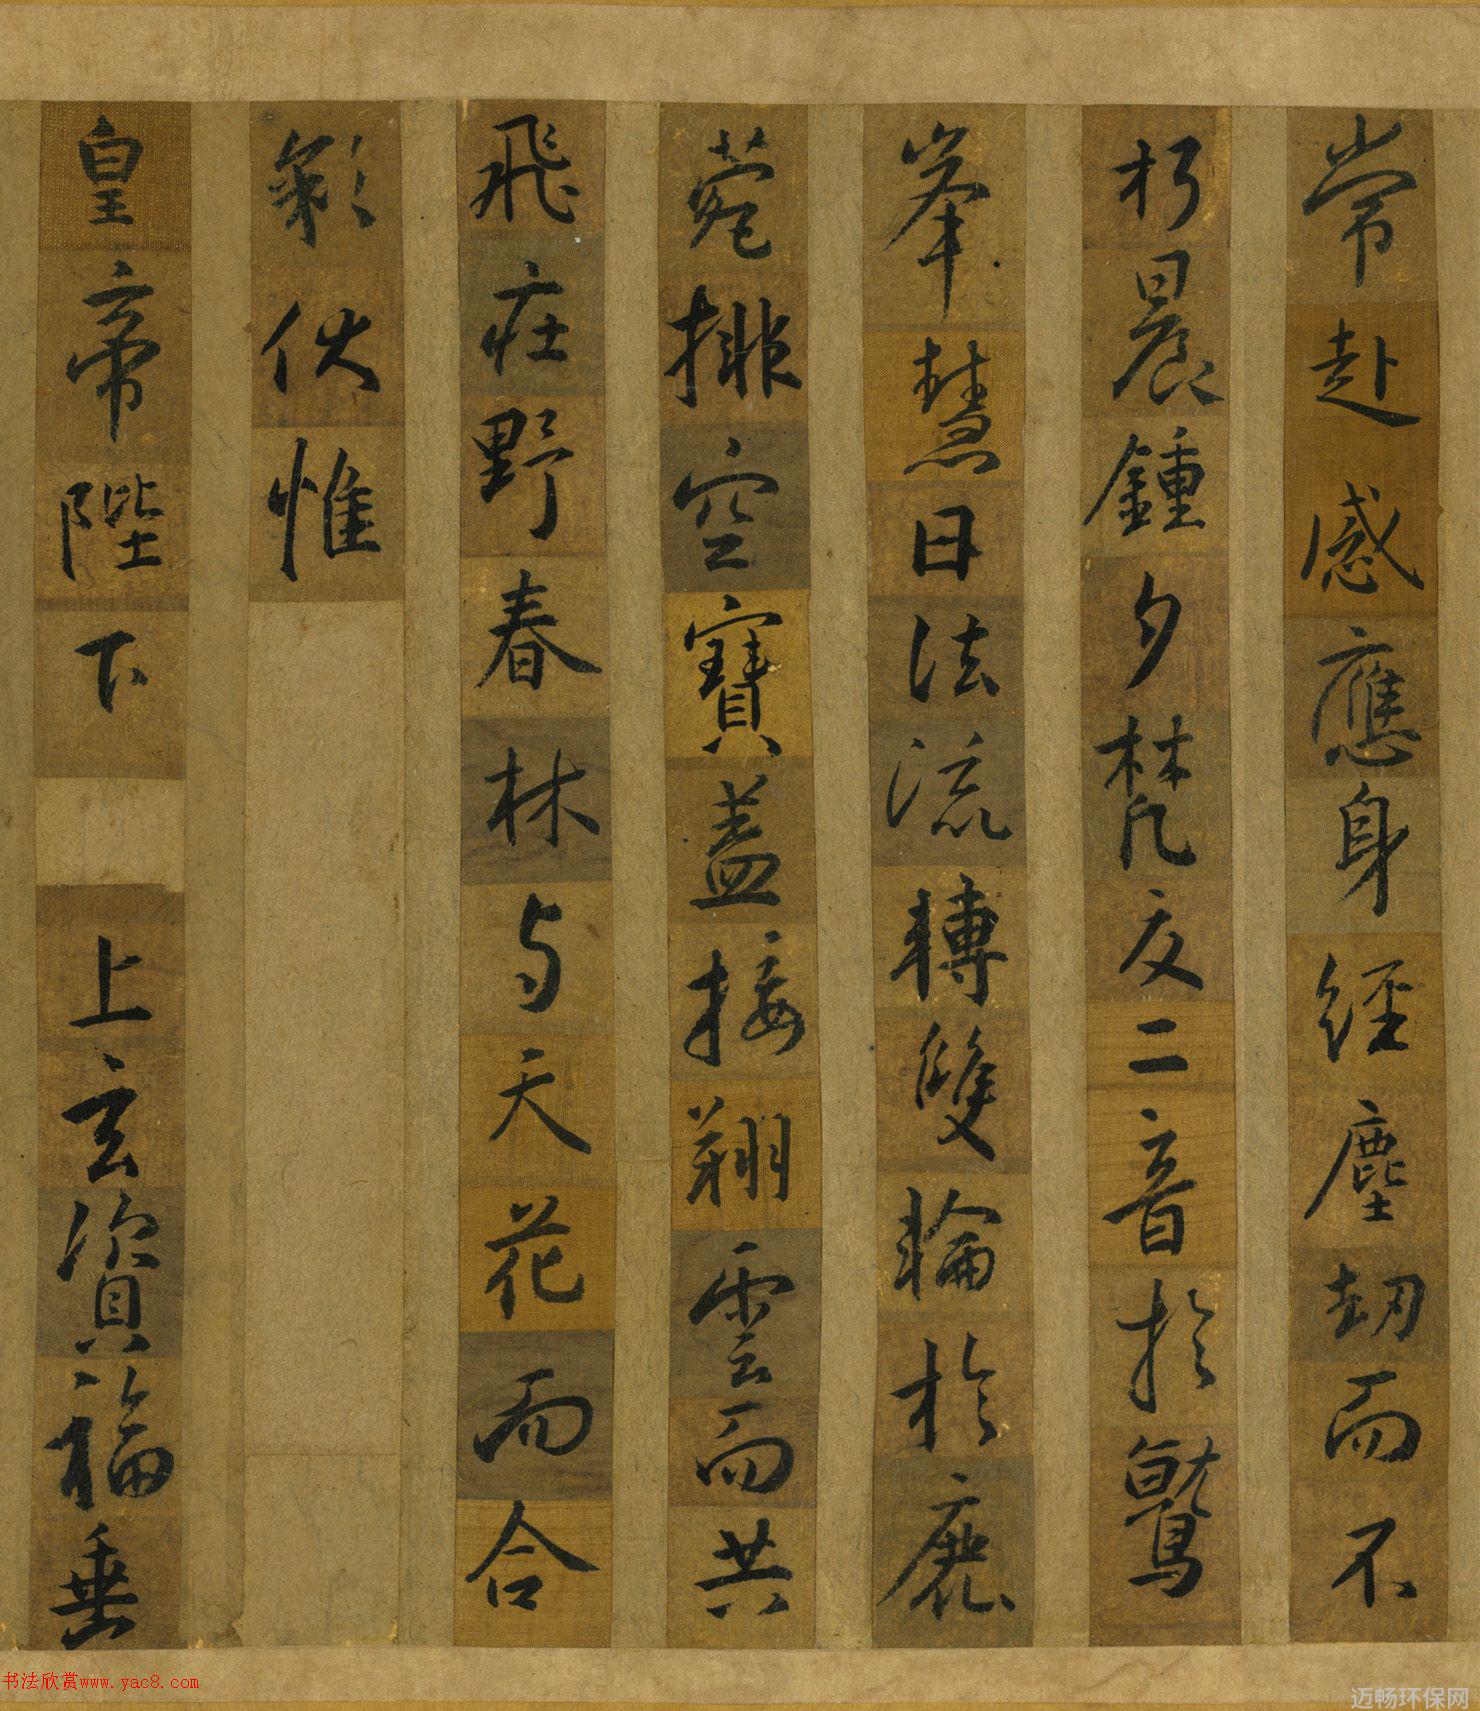 常赴感應身經塵劫而不
朽晨鍾夕梵交二音於鷲
峯慧日法流轉雙輪於鹿
菀排空寶蓋接翔雲而共
飛庄野春林与天花而合
彩伏惟
皇帝陛下 上玄資福垂
书法欣赏www.yac8.com
迈畅环保网